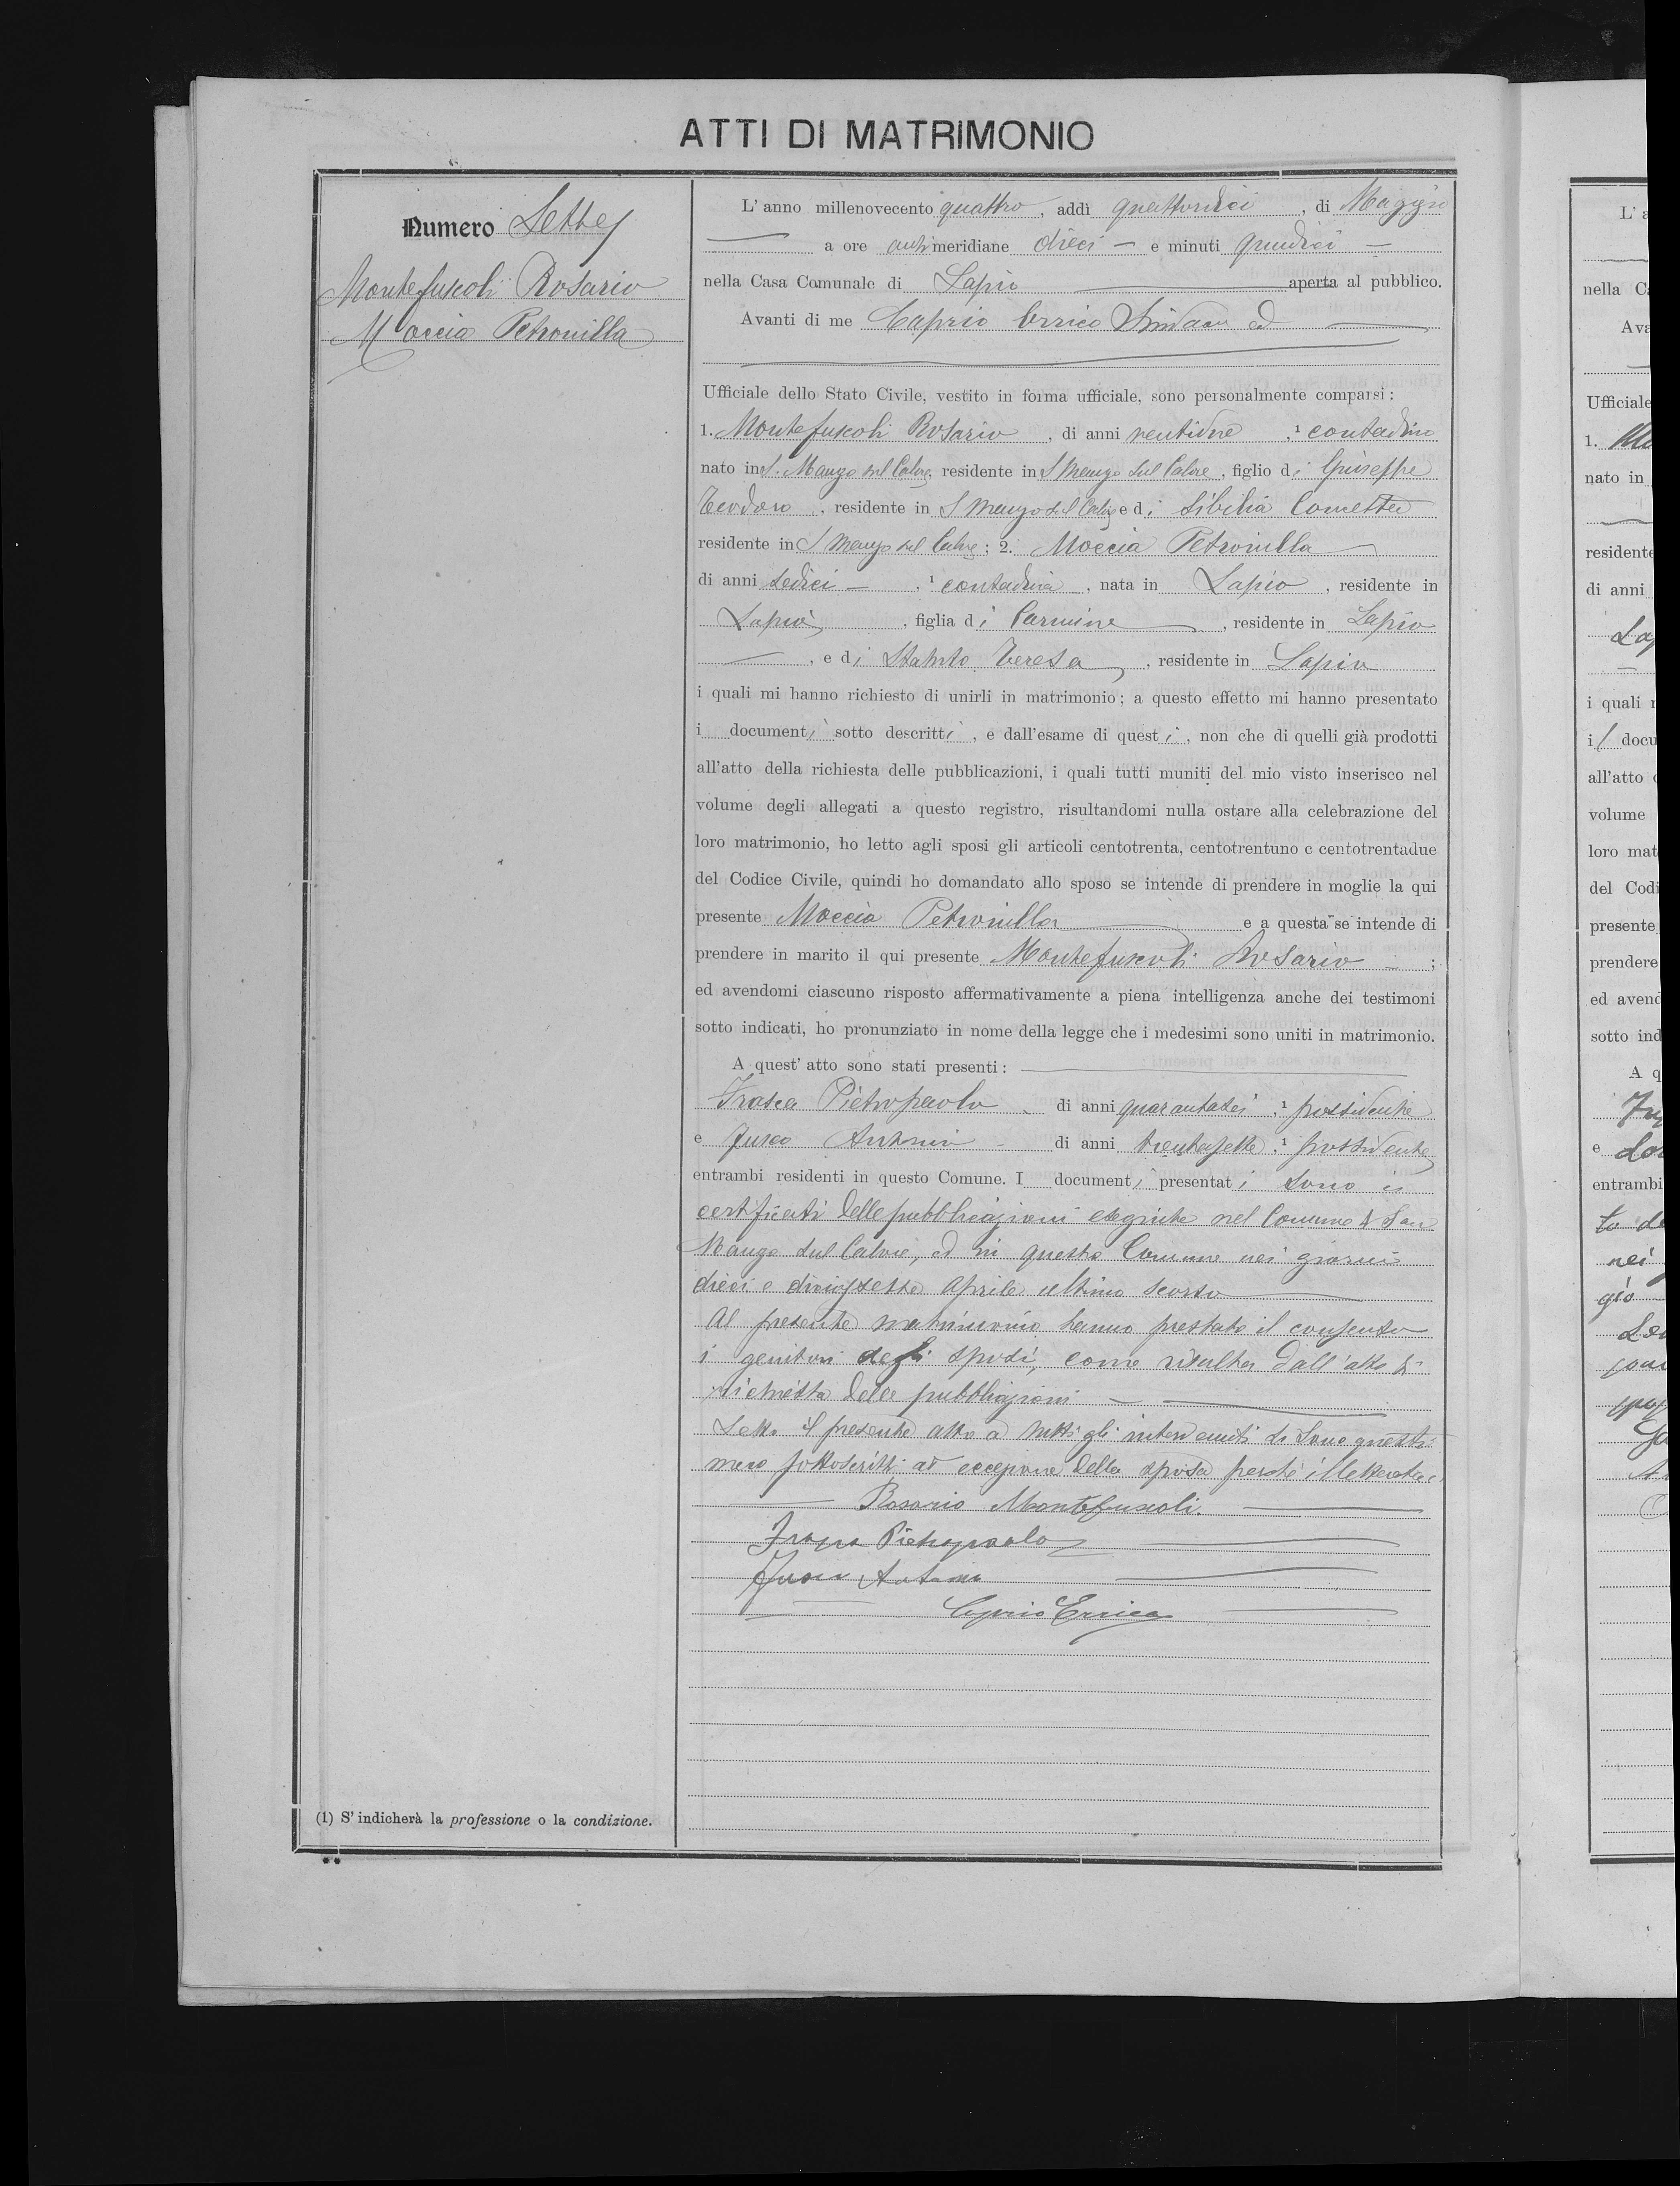 ATTI DI MATRIMONIO
Numero Sette
Montefuscoli Rosario
Moccia Petronilla
L'anno millenovecento quattro, addì quattordici, di Maggio
a ore antimeridiane dieci e minuti quindici
nella Casa Comunale di Lapio aperta al pubblico.
Avanti di me Caprio Errico Sindaco ed
Ufficiale dello Stato Civile, vestito in forma ufficiale, sono personalmente comparsi:
1. Montefuscoli Rosario, di anni ventidue, ¹ contadino
nato in S. Mango sul Calore, residente in S Mango sul Calore, figlio di Giuseppe
Teodoro, residente in S Mango sul Calore e di Sibilia Concetta
residente in S Mango sul Calore; 2. Moccia Petronilla
di anni sedici, ¹ contadina, nata in Lapio, residente in
Lapio, figlia di Carmine, residente in Lapio
, e di Teresa, residente in Lapio
i quali mi hanno richiesto di unirli in matrimonio; a questo effetto mi hanno presentato
i documenti sotto descritti, e dall'esame di questi, non che di quelli già prodotti
all'atto della richiesta delle pubblicazioni, i quali tutti muniti del mio visto inserisco nel
volume degli allegati a questo registro, risultandomi nulla ostare alla celebrazione del
loro matrimonio, ho letto agli sposi gli articoli centotrenta, centotrentuno e centotrentadue
del Codice Civile, quindi ho domandato allo sposo se intende di prendere in moglie la qui
presente Moccia Petronilla e a questa se intende di
prendere in marito il qui presente Montefuscoli Rosario ;
ed avendomi ciascuno risposto affermativamente a piena intelligenza anche dei testimoni
sotto indicati, ho pronunziato in nome della legge che i medesimi sono uniti in matrimonio.
A quest'atto sono stati presenti:
Frasca Pietropaolo di anni quarantasei, ¹ possidente
e Fusco Antonio di anni trentasette, ¹ possidente
entrambi residenti in questo Comune. I documenti presentati sono i
certificati delle pubblicazioni eseguite nel Comune di San
Mango sul Calore, ed in questo Comune nei giorni
dieci e diciassette aprile ultimo scorso
Al presente matrimonio hanno prestato il consenso
i genitori degli sposi, come risulta dall'atto di
richiesta delle pubblicazioni
Letto il presente atto a tutti gli intervenuti si sono questi
meco sottoscritti ad eccezione della sposa perché illetterata.
Rosario Montefuscoli.
Frasca Pietropaolo
Fusco Antonio
Caprio Errico
(1) S'indicherà la professione o la condizione.
L'a
nella C
Ava
Ufficiale
1.
nato in
residente
di anni
Lap
i quali
i docu
all'atto
volume
loro mat
del Codi
presente
prendere
ed avend
sotto ind
A q
e
entrambi
nei